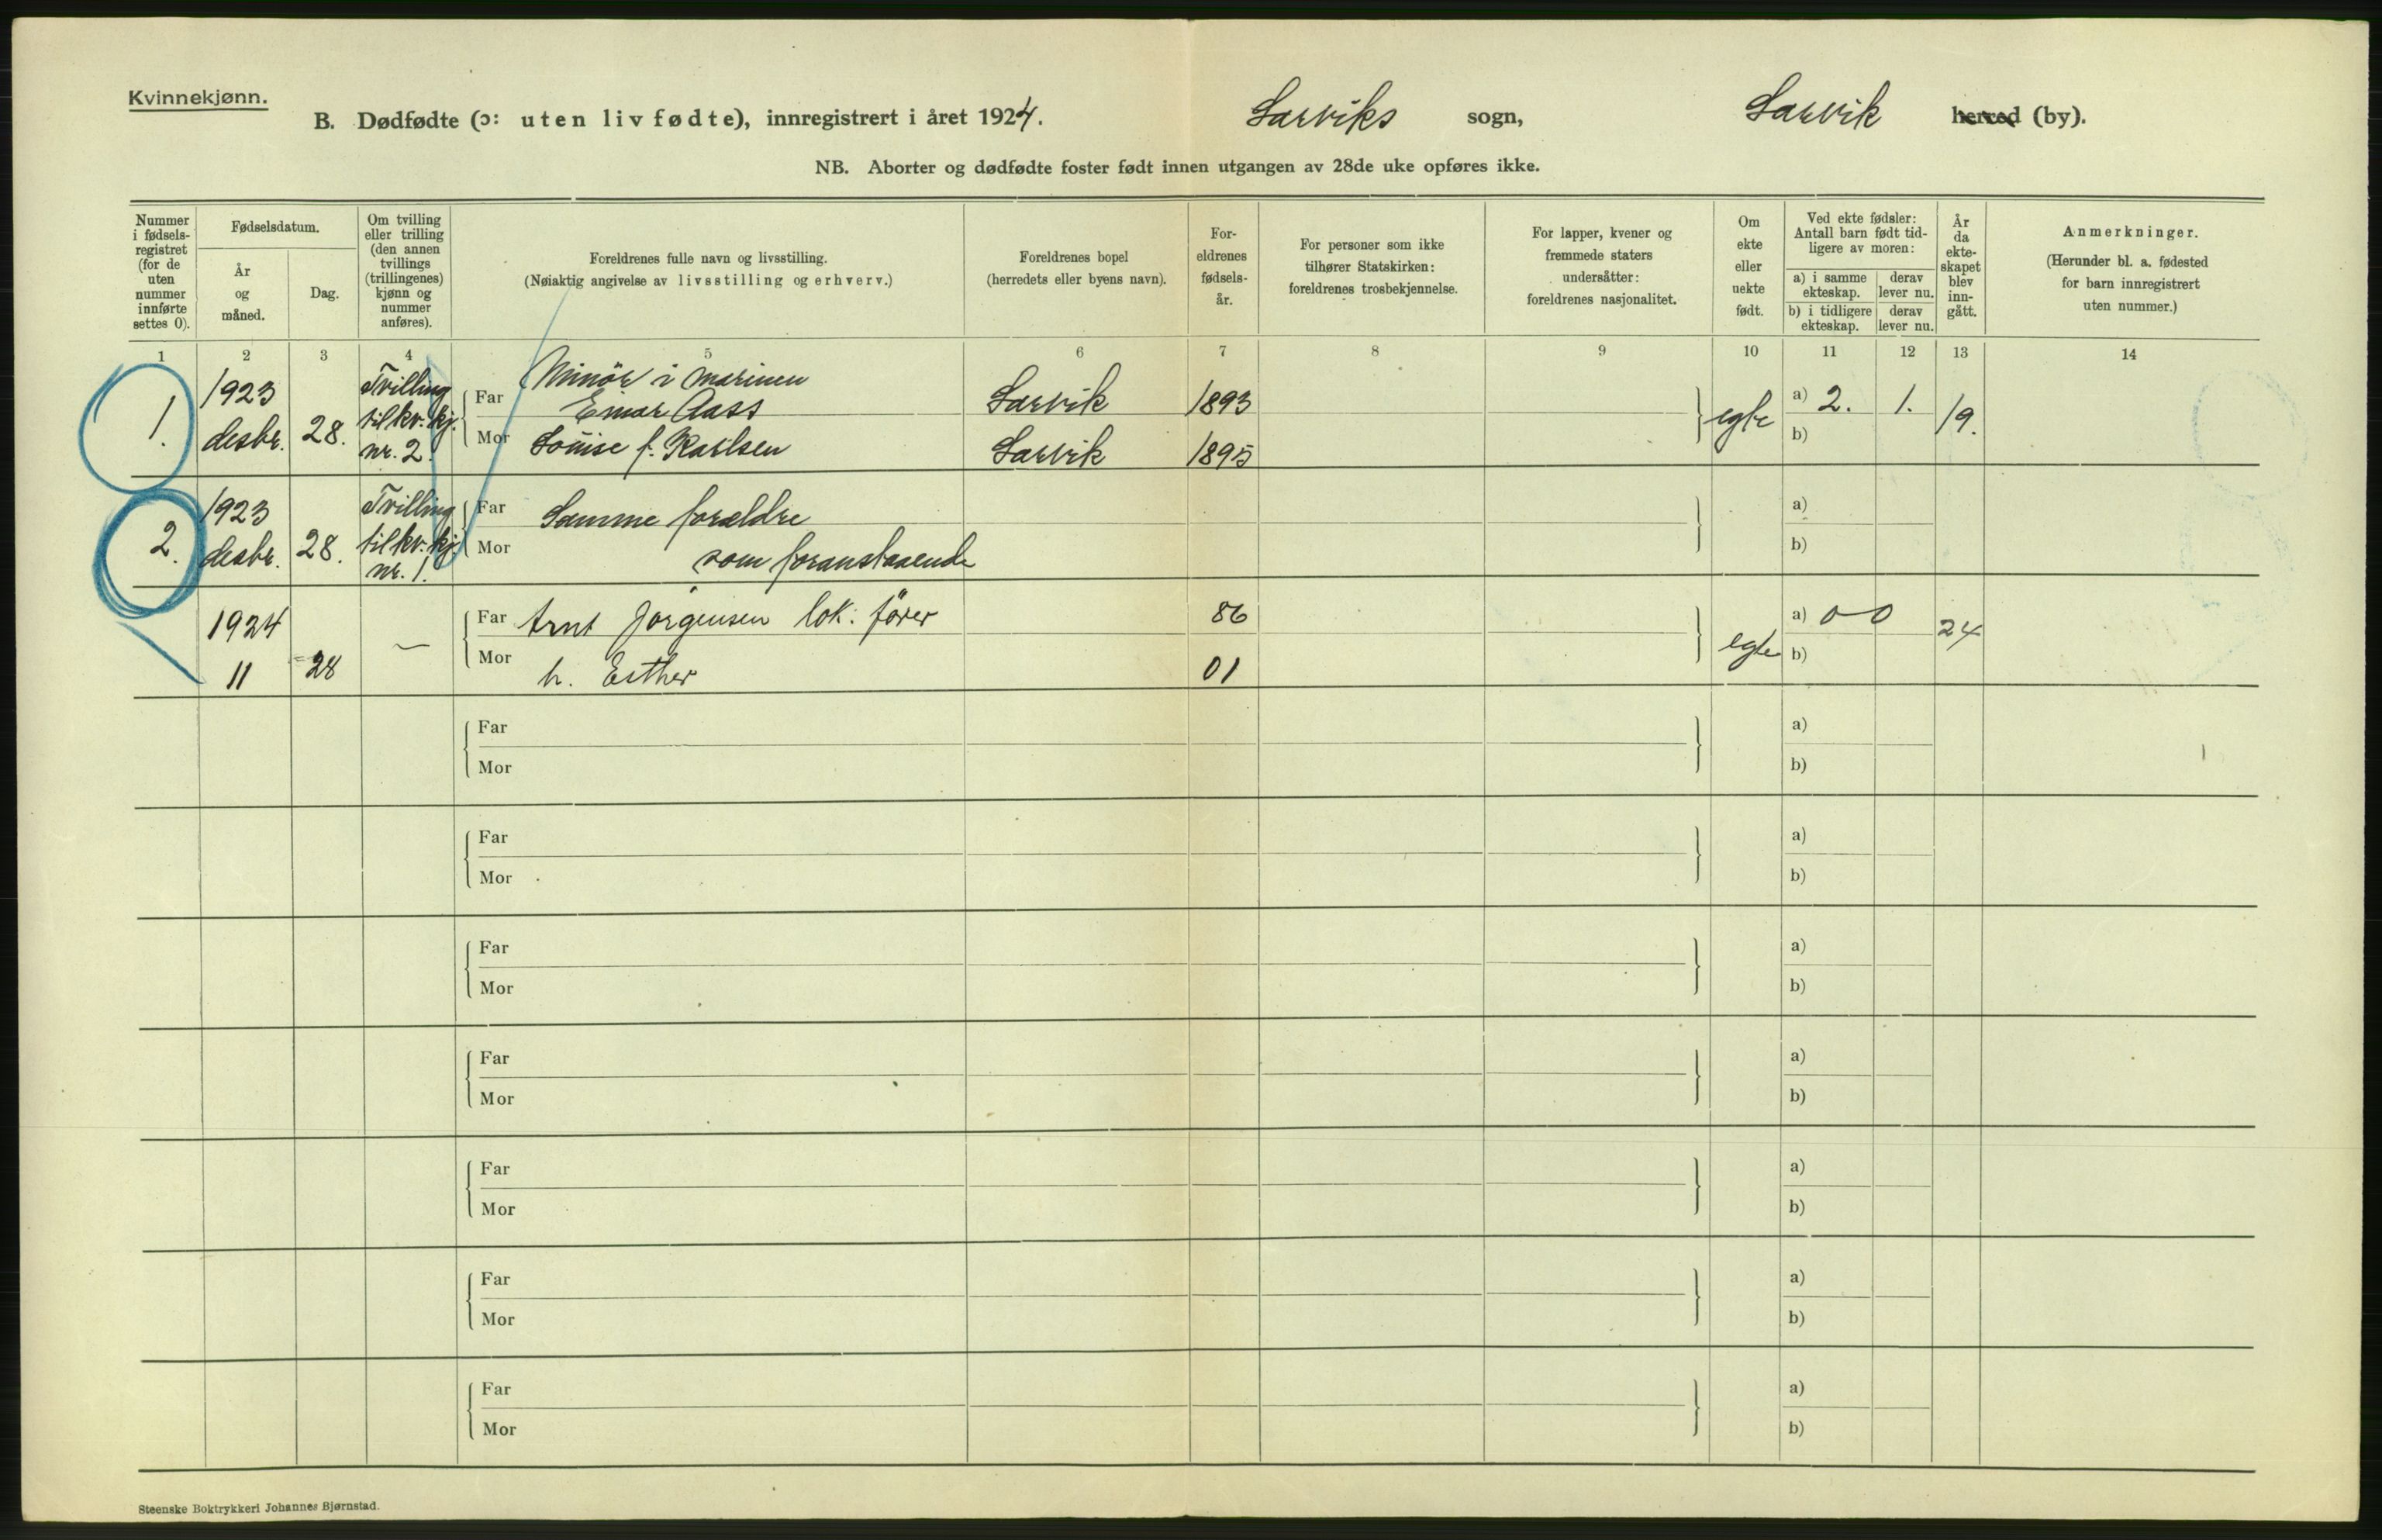 Kvinnekjønn.
B. Dødfødte (ɔ: uten liv fødte), innregistrert i året 1924. Larviks sogn, Larvik herred (by).
NB. Aborter og dødfødte foster født innen utgangen av 28de uke opføres ikke.
Nummer i fødsels-registret (for de uten nummer innførte settes 0).
Fødselsdatum.
År og måned.
Dag.
Om tvilling eller trilling (den annen tvillings (trillingenes) kjønn og nummer anføres).
Foreldrenes fulle navn og livsstilling.
(Nøiaktig angivelse av livsstilling og erhverv.)
Foreldrenes bopel
(herredets eller byens navn).
For-eldrenes fødsels-år.
For personer som ikke tilhører Statskirken: foreldrenes trosbekjennelse.
For lapper, kvener og fremmede staters undersåtter: foreldrenes nasjonalitet.
Om ekte eller uekte født.
Ved ekte fødsler: Antall barn født tid-ligere av moren:
a) i samme ekteskap.
derav lever nu.
b) i tidligere ekteskap.
derav lever nu.
År da ekte-skapet blev inn-gått.
Anmerkninger.
(Herunder bl. a. fødested for barn innregistrert uten nummer.)
1 2 3 4 5 6 7 8 9 10 11 12 13 14
1. 1923 desbr. 28. Tvilling til kv. kj. nr. 2.
Far Minör i marinen
Einar Aass Larvik 1893
Mor Louise f. Karlsen Larvik 1895
egte a) 2. 1. 19.
b)
2. 1923 desbr. 28. Tvilling til kv. kj. nr. 1.
Far Samme forældre
Mor som foranstaaende
a)
b)
1924 11 28 —
Far Arnt Jorgensen lok. förer 86
Mor h. Esther 01
egte a) 0 0 24
b)
Far a)
Mor b)
Far a)
Mor b)
Far a)
Mor b)
Far a)
Mor b)
Far a)
Mor b)
Far a)
Mor b)
Far a)
Mor b)
Steenske Boktrykkeri Johannes Bjørnstad.